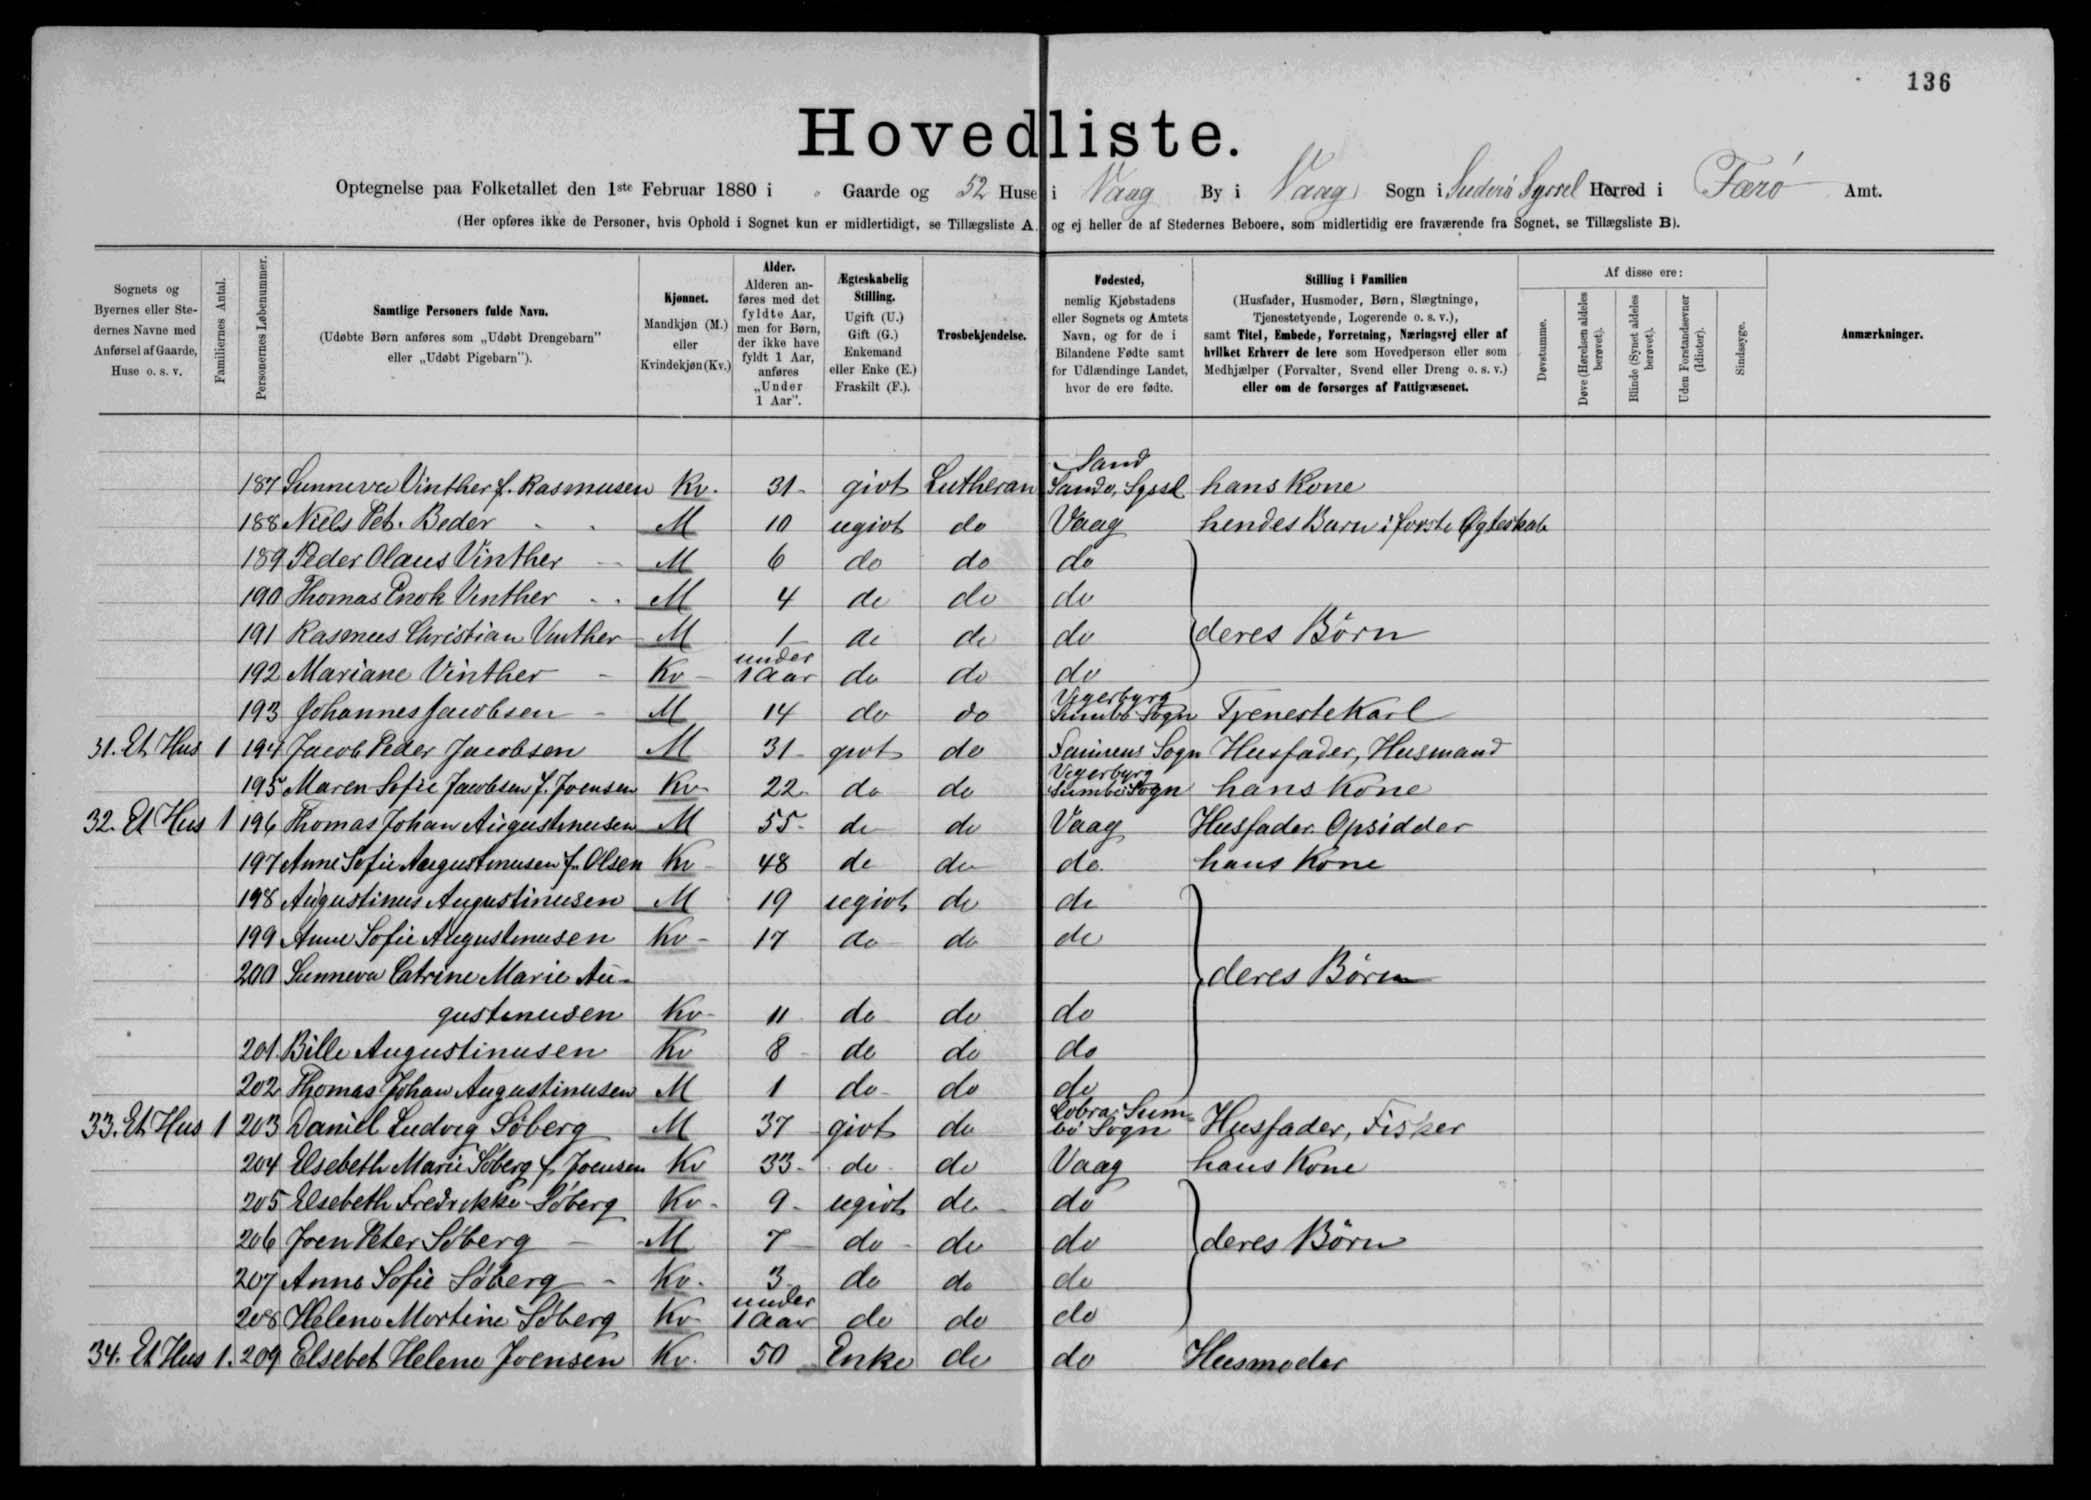 136
Hovedliste.
Optegnelse paa Folketallet den 1ste Februar 1880 i Gaarde og 52 Huse i Vaag By i Vaag Sogn i Suderö Syssel Herred i Færö Amt.
(Her opføres ikke de Personer, hvis Ophold i Sognet kun er midlertidigt, se Tillægsliste A. og ej heller de af Stedernes Beboere, som midlertidig ere fraværende fra Sognet, se Tillægsliste B).
Sognets og Byernes eller Stedernes Navne med Anførsel af Gaarde, Huse o. s. v.
Familiernes Antal.
Personernes Løbenummer.
Samtlige Personers fulde Navn.
(Udøbte Børn anføres som „Udøbt Drengebarn" eller „Udøbt Pigebarn").
Kjønnet.
Mandkjøn (M.) eller Kvindekjøn (Kv.)
Alder.
Alderen anføres med det fyldte Aar, men for Børn, der ikke have fyldt 1 Aar, anføres „Under 1 Aar".
Ægteskabelig Stilling.
Ugift (U.) Gift (G.) Enkemand eller Enke (E.) Fraskilt (F.).
Trosbekjendelse.
Fødested,
nemlig Kjøbstadens eller Sognets og Amtets Navn, og for de i Bilandene Fødte samt for Udlændinge Landet, hvor de ere fødte.
Stilling i Familien
(Husfader, Husmoder, Børn, Slægtninge, Tjenestetyende, Logerende o. s. v.),
samt Titel, Embede, Forretning, Næringsvej eller af hvilket Erhverv de leve som Hovedperson eller som Medhjælper (Forvalter, Svend eller Dreng o. s. v.) eller om de forsørges af Fattigvæsenet.
Af disse ere:
Døvstumme.
Døve (Hørelsen aldeles berøvet).
Blinde (Synet aldeles berøvet).
Uden Forstandsevner (Idioter).
Sindssyge.
Anmærkninger.
187 Sunneva Vinther f. Rasmusen Kv. 31 givt Lutheran Sand Sandö, Syssl hans Kone
188 Niels Pet. Beder M 10 ugivt do Vaag hendes Barn i forste Ægteskab
189 Peder Olaus Vinther M 6 do do do
190 Thomas Enok Vinther M 4 do do do
191 Rasmus Christian Vinther M 1 do do do deres Börn
192 Mariane Vinther Kv under 1 Aar do do do
193 Johannes Jacobsen M 14 do do Vigerbyrg Sumbö Sogn Tjenestekarl
31. Et Hus 1 194 Jacob Peder Jacobsen M 31 givt do Sogn Husfader, Husmand
195 Maren Sofie Jacobsen f. Joensen Kv 22 do do Vigerbyrg Sumbö Sogn hans Kone
32. Et Hus 1 196 Thomas Johan Augustinusen M 55 do do Vaag Husfader Opsidder
197 Anne Sofie Augustinusen f. Olsen Kv 48 do do do hans Kone
198 Augustinus Augustinusen M 19 ugivt do do
199 Anne Sofie Augustinusen Kv 17 do do do
200 Sunneva Catrine Marie Au- deres Börn
gustinusen Kv 11 do do do
201. Bille Augustinusen Kv 8 do do do
202 Thomas Johan Augustinusen M 1 do do do
33. Et Hus 1 203 Daniel Ludvig Söberg M 37 givt do Lobra Sumbö Sogn Husfader, Fisker
204 Elsebeth Marie Söberg f. Joensen Kv 33 do do Vaag hans Kone
205 Elsebeth Fredrikke Söberg Kv 9 ugivt do do
206 Joen Peter Söberg M 7 do do do deres Börn
207 Anna Sofie Söberg Kv. 3 do do do
208 Helene Mortine Söberg Kv under 1 Aar do do do
34. Et Hus 1. 209 Elsebet Helene Joensen Kv. 50 Enke do do Husmoder